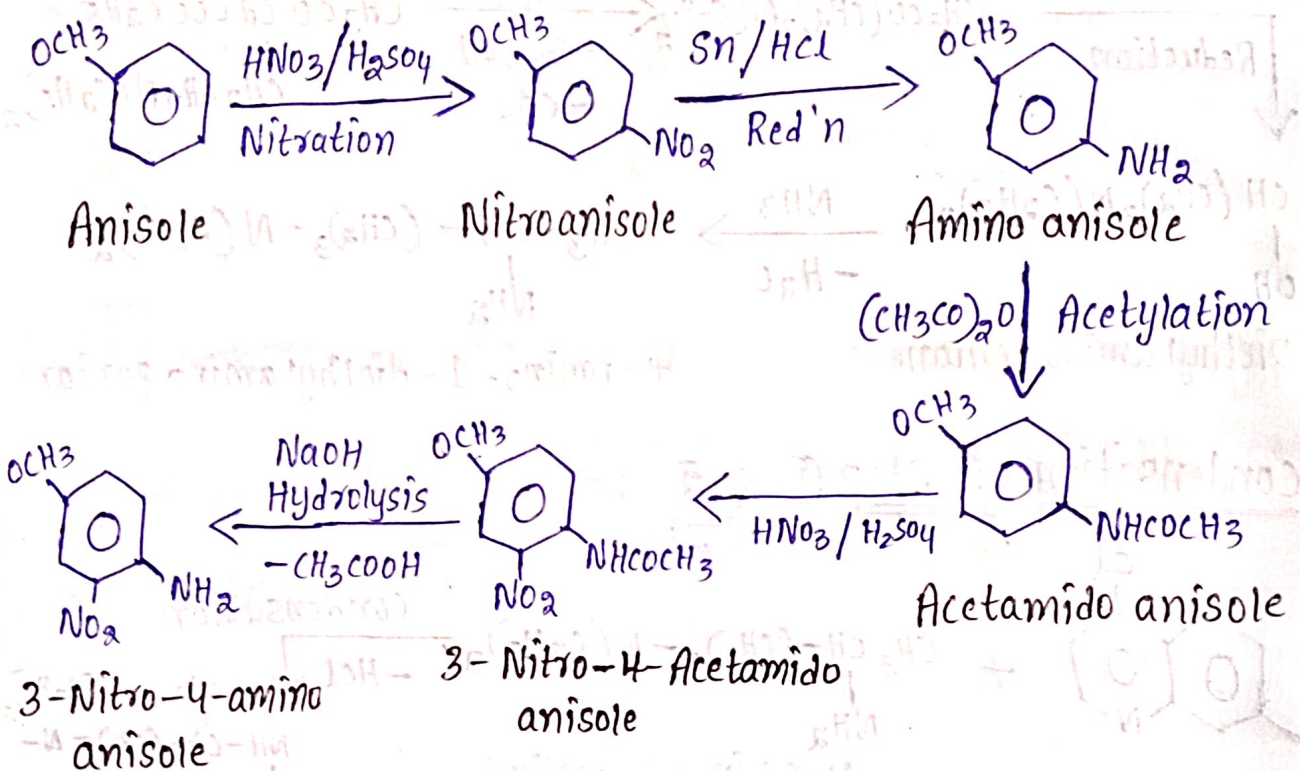 OCH3
HNO3/H2SO4
Nitration
OCH3
NO2
Sn/HCl
Red'n
OCH3
NH2
Anisole
Nitroanisole
Amino anisole
(CH3CO)2O
Acetylation
OCH3
NHCOCH3
Acetamido anisole
HNO3/H2SO4
OCH3
NHCOCH3
NO2
3-Nitro-4-Acetamido
anisole
NaOH
Hydrolysis
-CH3COOH
OCH3
NH2
NO2
3-Nitro-4-amino
anisole